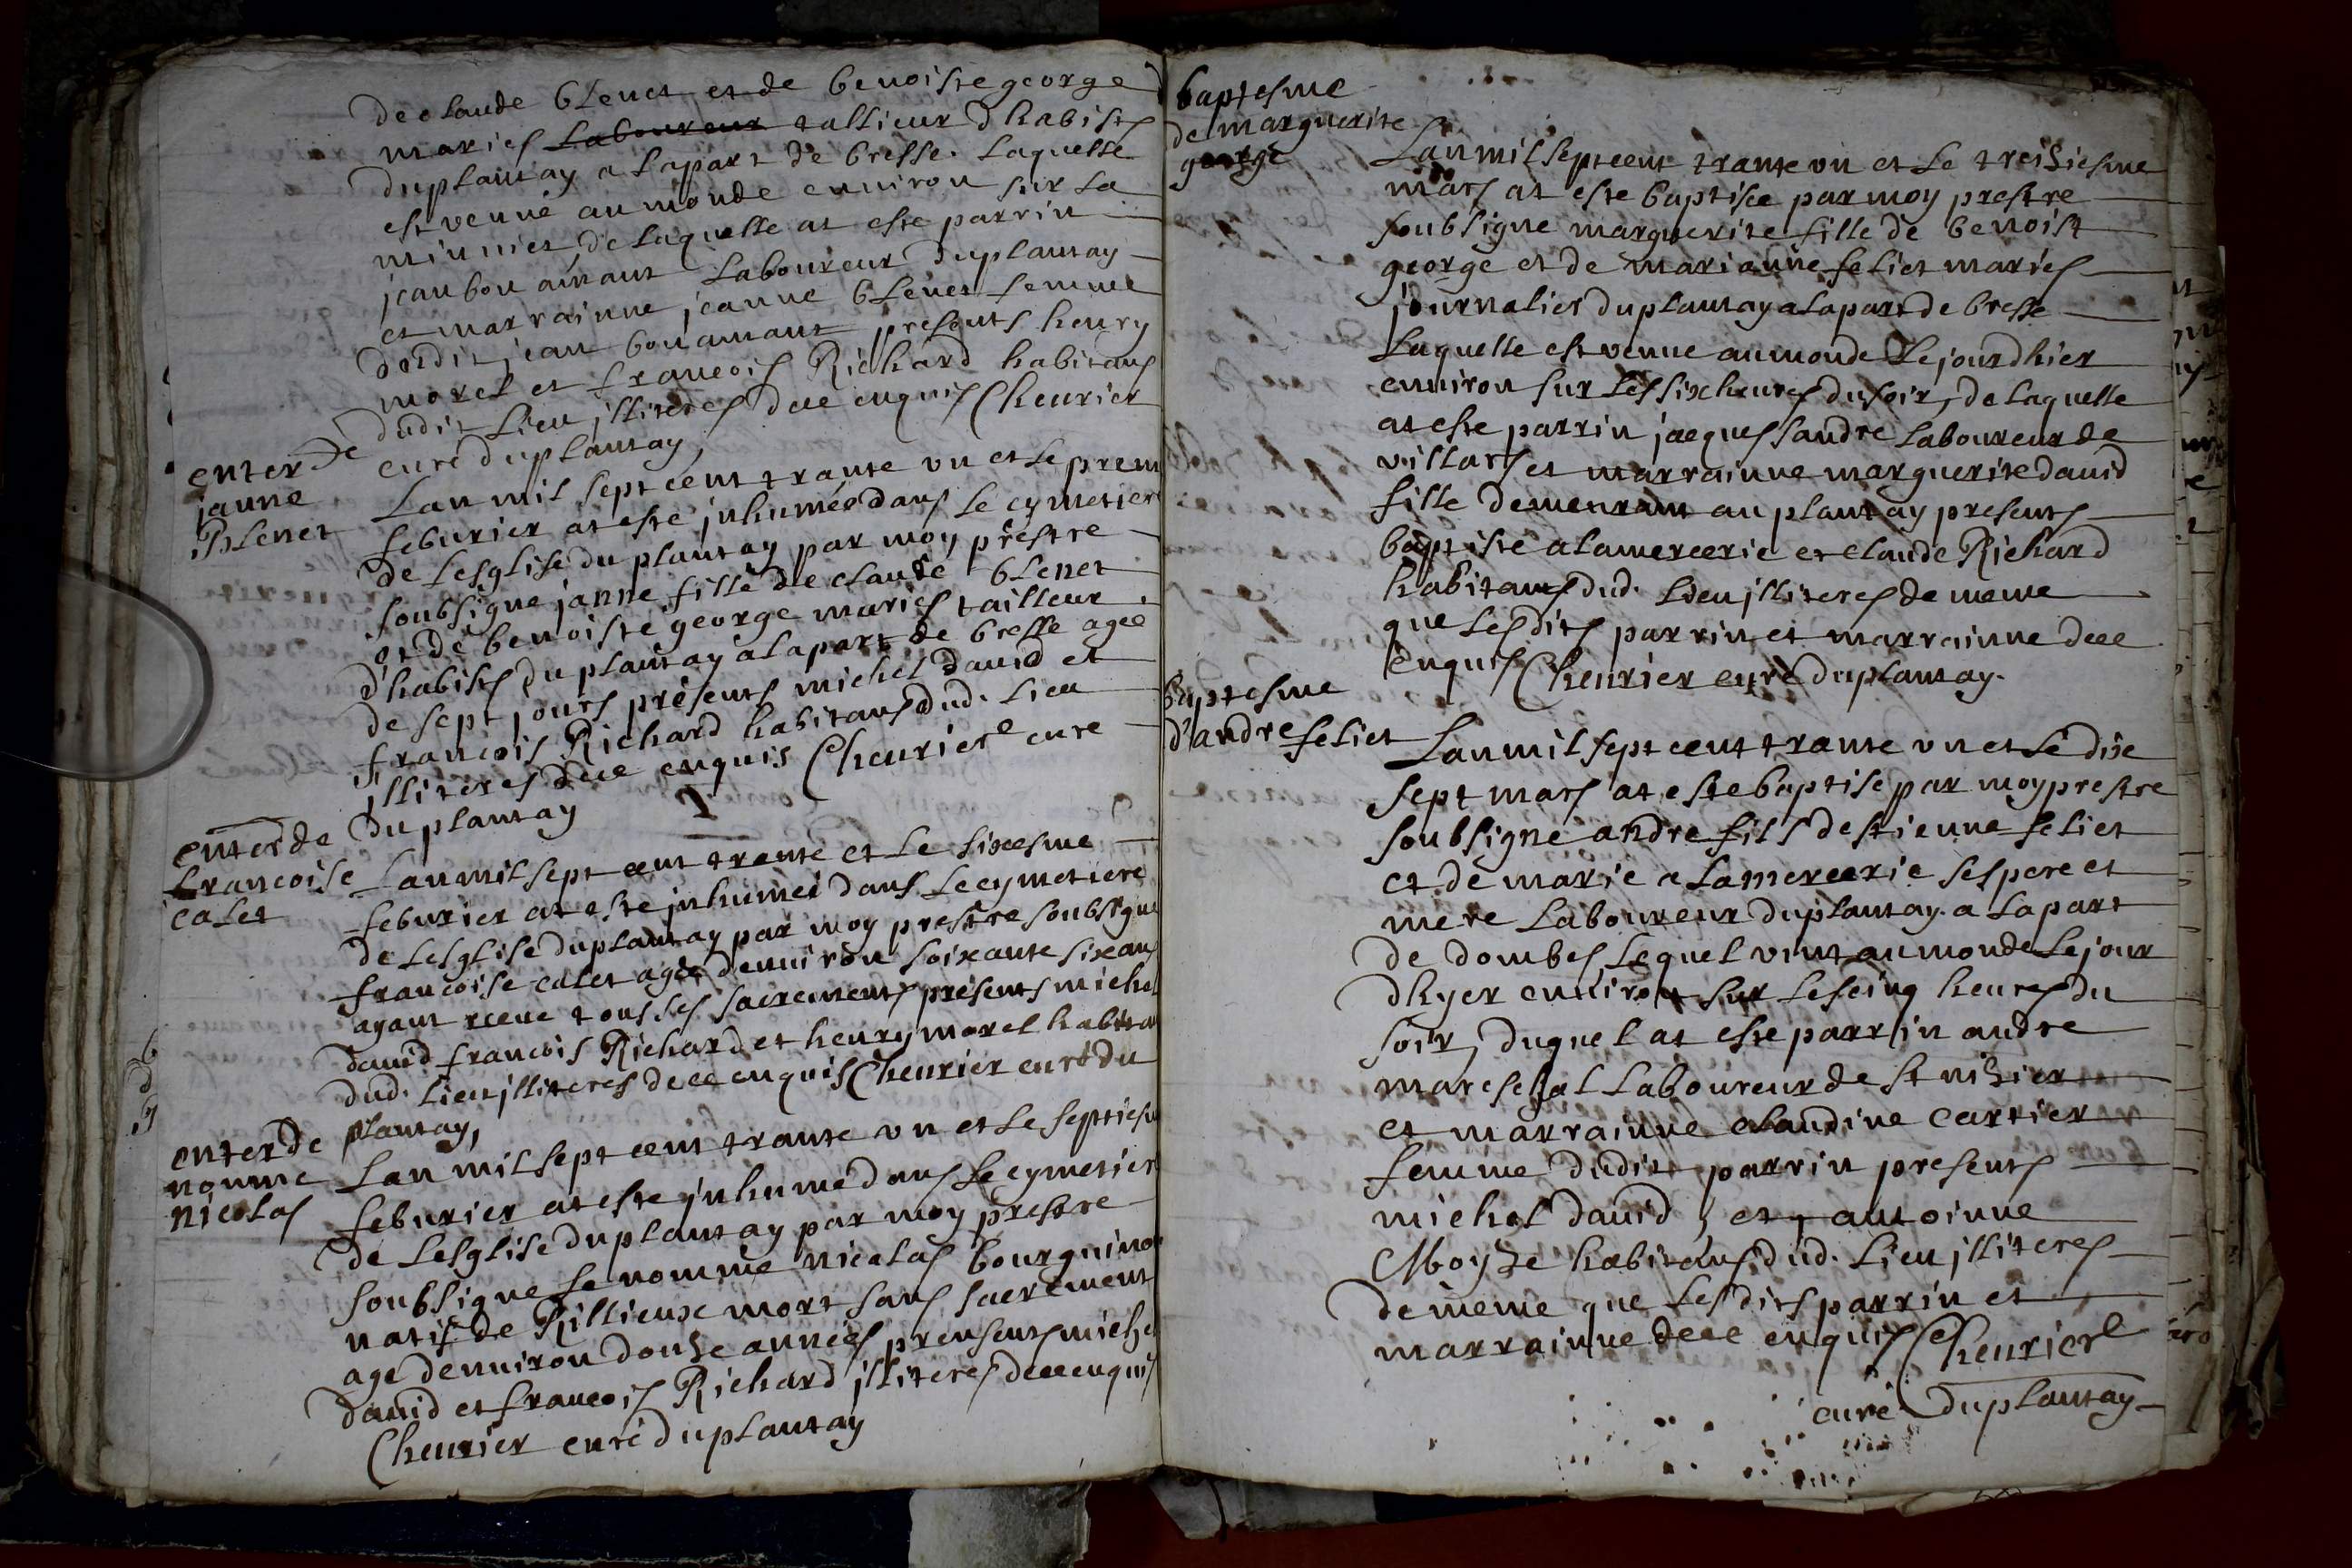 de claude blenet et de benoiste george
maries Laboureur tallieur dhabits
duplantay a lapart de bresse. Laquelle
est venue au monde environ sur La
minuict, de laquelle at este parrin
jean bon amant Laboureur duplantay
et marrainne jeanne blenet femme
dudit jean bon amant presents henry
morel et francois Richard habitans
dudit Lieu jlliteres de ce enquis Cheurier
curé duplantay,
enter de
janne
Blenet
Lan mil sept cent trante vn et le prem
feburier at este jnhumée dans le cymetier
de Lesglise du plantay par moy prestre
soubsigne janne fille de claude blenet
et de benoiste george maries tailleur
d'habits du plantay a lapart de bresse agee
de sept jours présents michel david et
francois Richard habitans dud. lieu
jlliteres de ce enquis Cheurier cure
du plantay
enter de
francoise
calet
Lan mil sept cent trante et le sixcesme
feburier at este jnhumée dans le cymetiere
de Lesglise duplantay par moy prestre soubsigne
francoise calet agée denviron soixante six ans
ayant receue tous ses sacrements présents michel
david francois Richard et henry morel habitan
dud. Lieu jlliteres de ce enquis Cheurier curé du
plantay,
enter de
nomme
nicolas
Lan mil sept cent trante vn et le septiesm
feburier at este jnhumé dans le cymetier
de Lesglise duplantay par moy prestre
soubsigne le nommé nicolas bourguino
natif de Rillieux mort sans sacrement
age denviron douze années prensents miche
david et francois Richard jlliteres de ce enquis
Cheurier curé duplantay
baptesme
de marguerite
george
Lan mil sept cent trante vn et le treiziesme
mars at este baptisée par moy prestre
soubsigne marguerite fille de benoist
george et de marianne feliet maries
journalier duplantay a lapart de bresse
Laquelle est venue au monde Le jourdhier
environ sur Les six heures du soir, de laquelle
at este parrin jacques sandre Laboureur de
villars et marrainne marguerite david
fille demeurant au plantay presents
baptiste a lamercerie et claude Richard
habitans dud. Lieu jlliteres de meme
que lesdits parrin et marrainne de ce
enquis Cheurier curé duplantay.
baptesme
d'andre feliet
Lan mil sept cent trante vn et Le dix
sept mars at este baptise par moy prestre
soubsigne andre fils destienne feliet
et de marie a Lamercerie ses pere et
mere Laboureur duplantay. a lapart
de dombes, Lequel vint au monde Le jour
dhyer environ sur Les cinq heures du
soir, duquel at este parrin andre
mareschal Laboureur de St nizier
et marrainne claudine cartier
femme dudit parrin presents
michel david, et antoinne
Moyze habitans dud. Lieu jlliteres
de meme que lesdits parrin et
marrainne de ce enquis Cheurier
curé duplantay